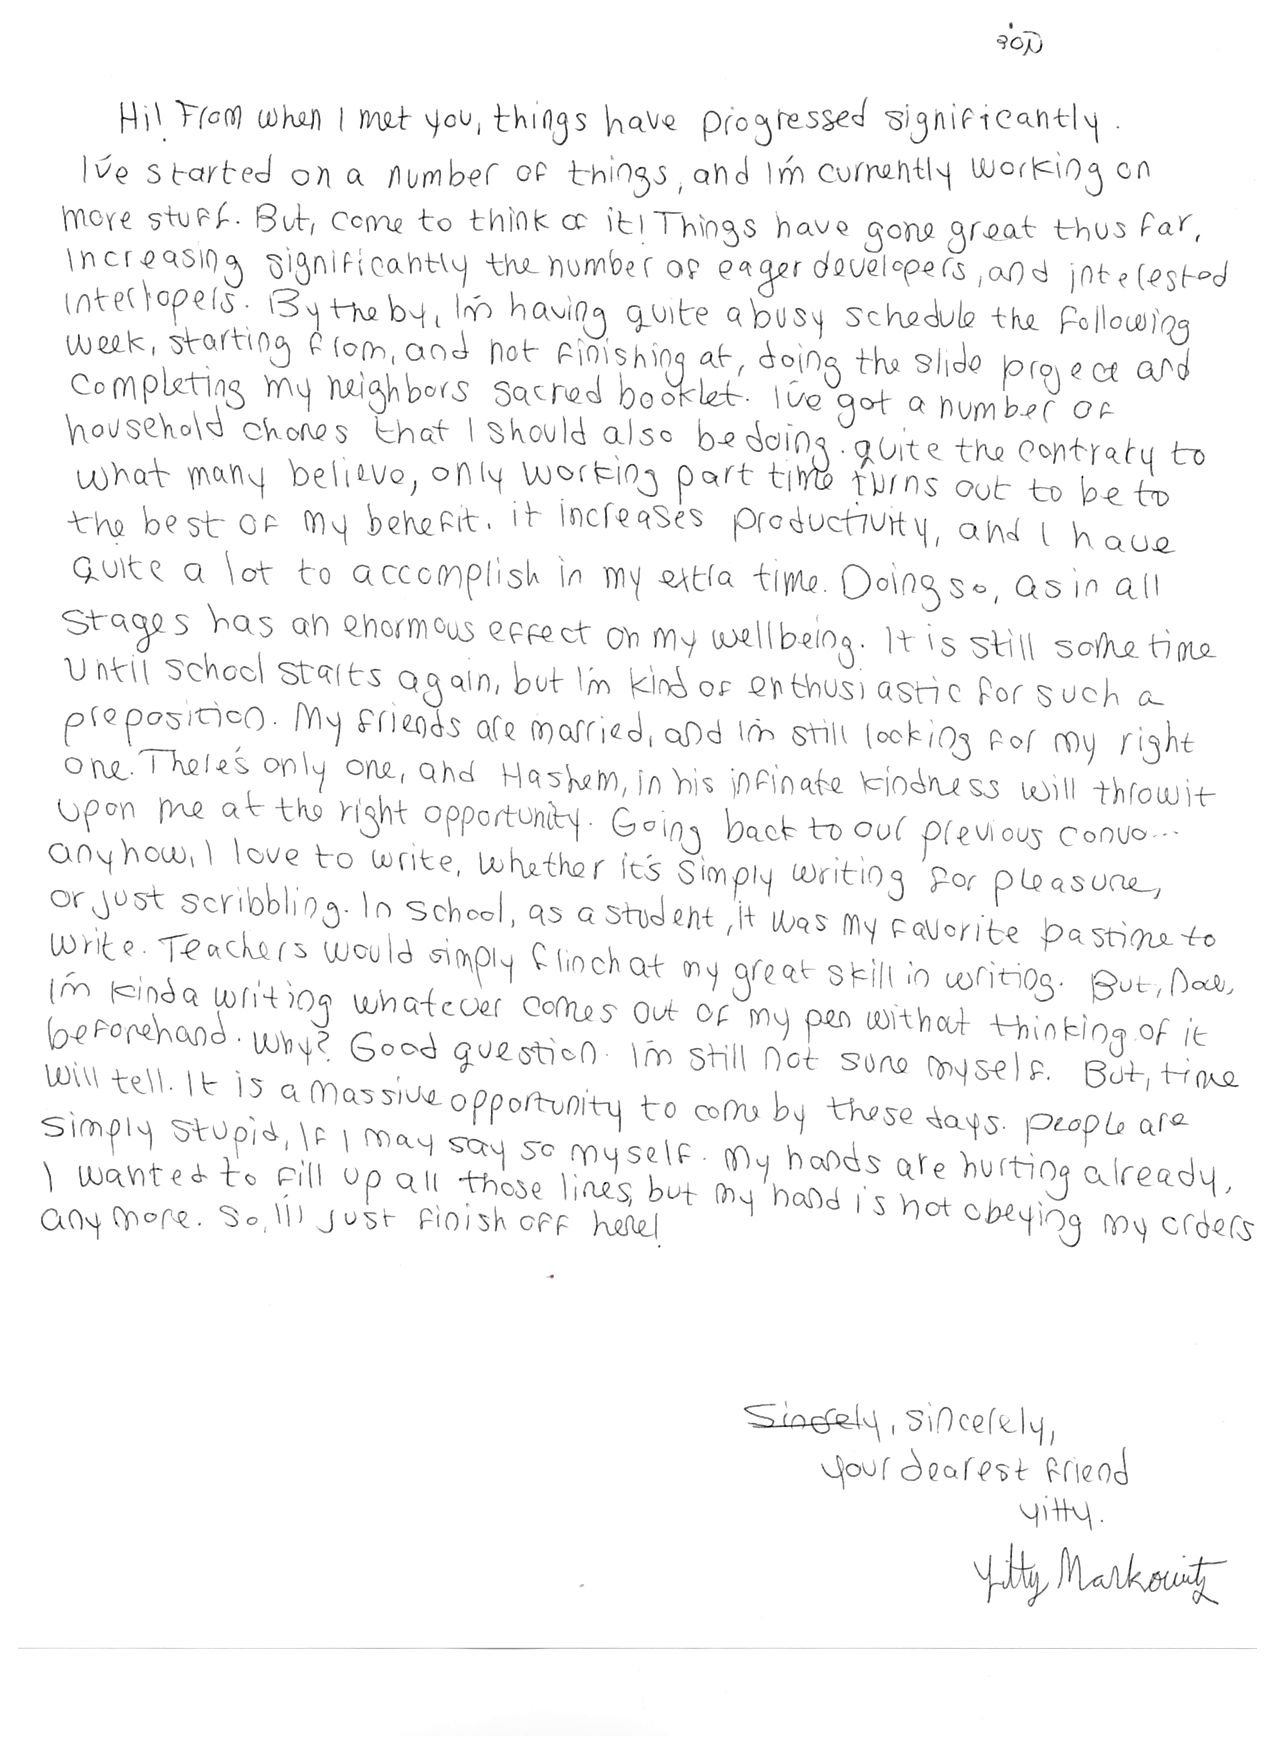 Hi! From when I met you, things have progressed significantly.
I've started on a number of things, and I'm currently working on
more stuff. But, come to think of it! Things have gone great thus far,
increasing significantly the number of eager developers, and interested
interlopers. By the by, I'm having quite a busy schedule the following
week, starting from, and not finishing at, doing the slide project and
completing my neighbors sacred booklet. I've got a number of
household chores that I should also be doing. quite the contrary to
what many believe, only working part time turns out to be to
the best of my benefit. it increases productivity, and I have
quite a lot to accomplish in my extra time. Doing so, as in all
stages has an enormous effect on my wellbeing. It is still some time
until school starts again, but I'm kind of enthusiastic for such a
preposition. My friends are married, and I'm still looking for my right
one. There's only one, and Hashem, in his infinate kindness will throw it
upon me at the right opportunity. Going back to our previous convo...
anyhow, I love to write, whether it's simply writing for pleasure,
or just scribbling. In school, as a student, it was my favorite pastime to
write. Teachers would simply flinch at my great skill in writing. But,
I'm kinda writing whatever comes out of my pen without thinking of it
beforehand. Why? Good question. I'm still not sure myself. But, time
will tell. It is a massive opportunity to come by these days. people are
simply stupid, If I may say so myself. My hands are hurting already,
I wanted to fill up all those lines, but my hand is not obeying my orders
any more. So, I'll just finish off here!
sincerely,
your dearest friend
yitty.
Yitty Markowitz